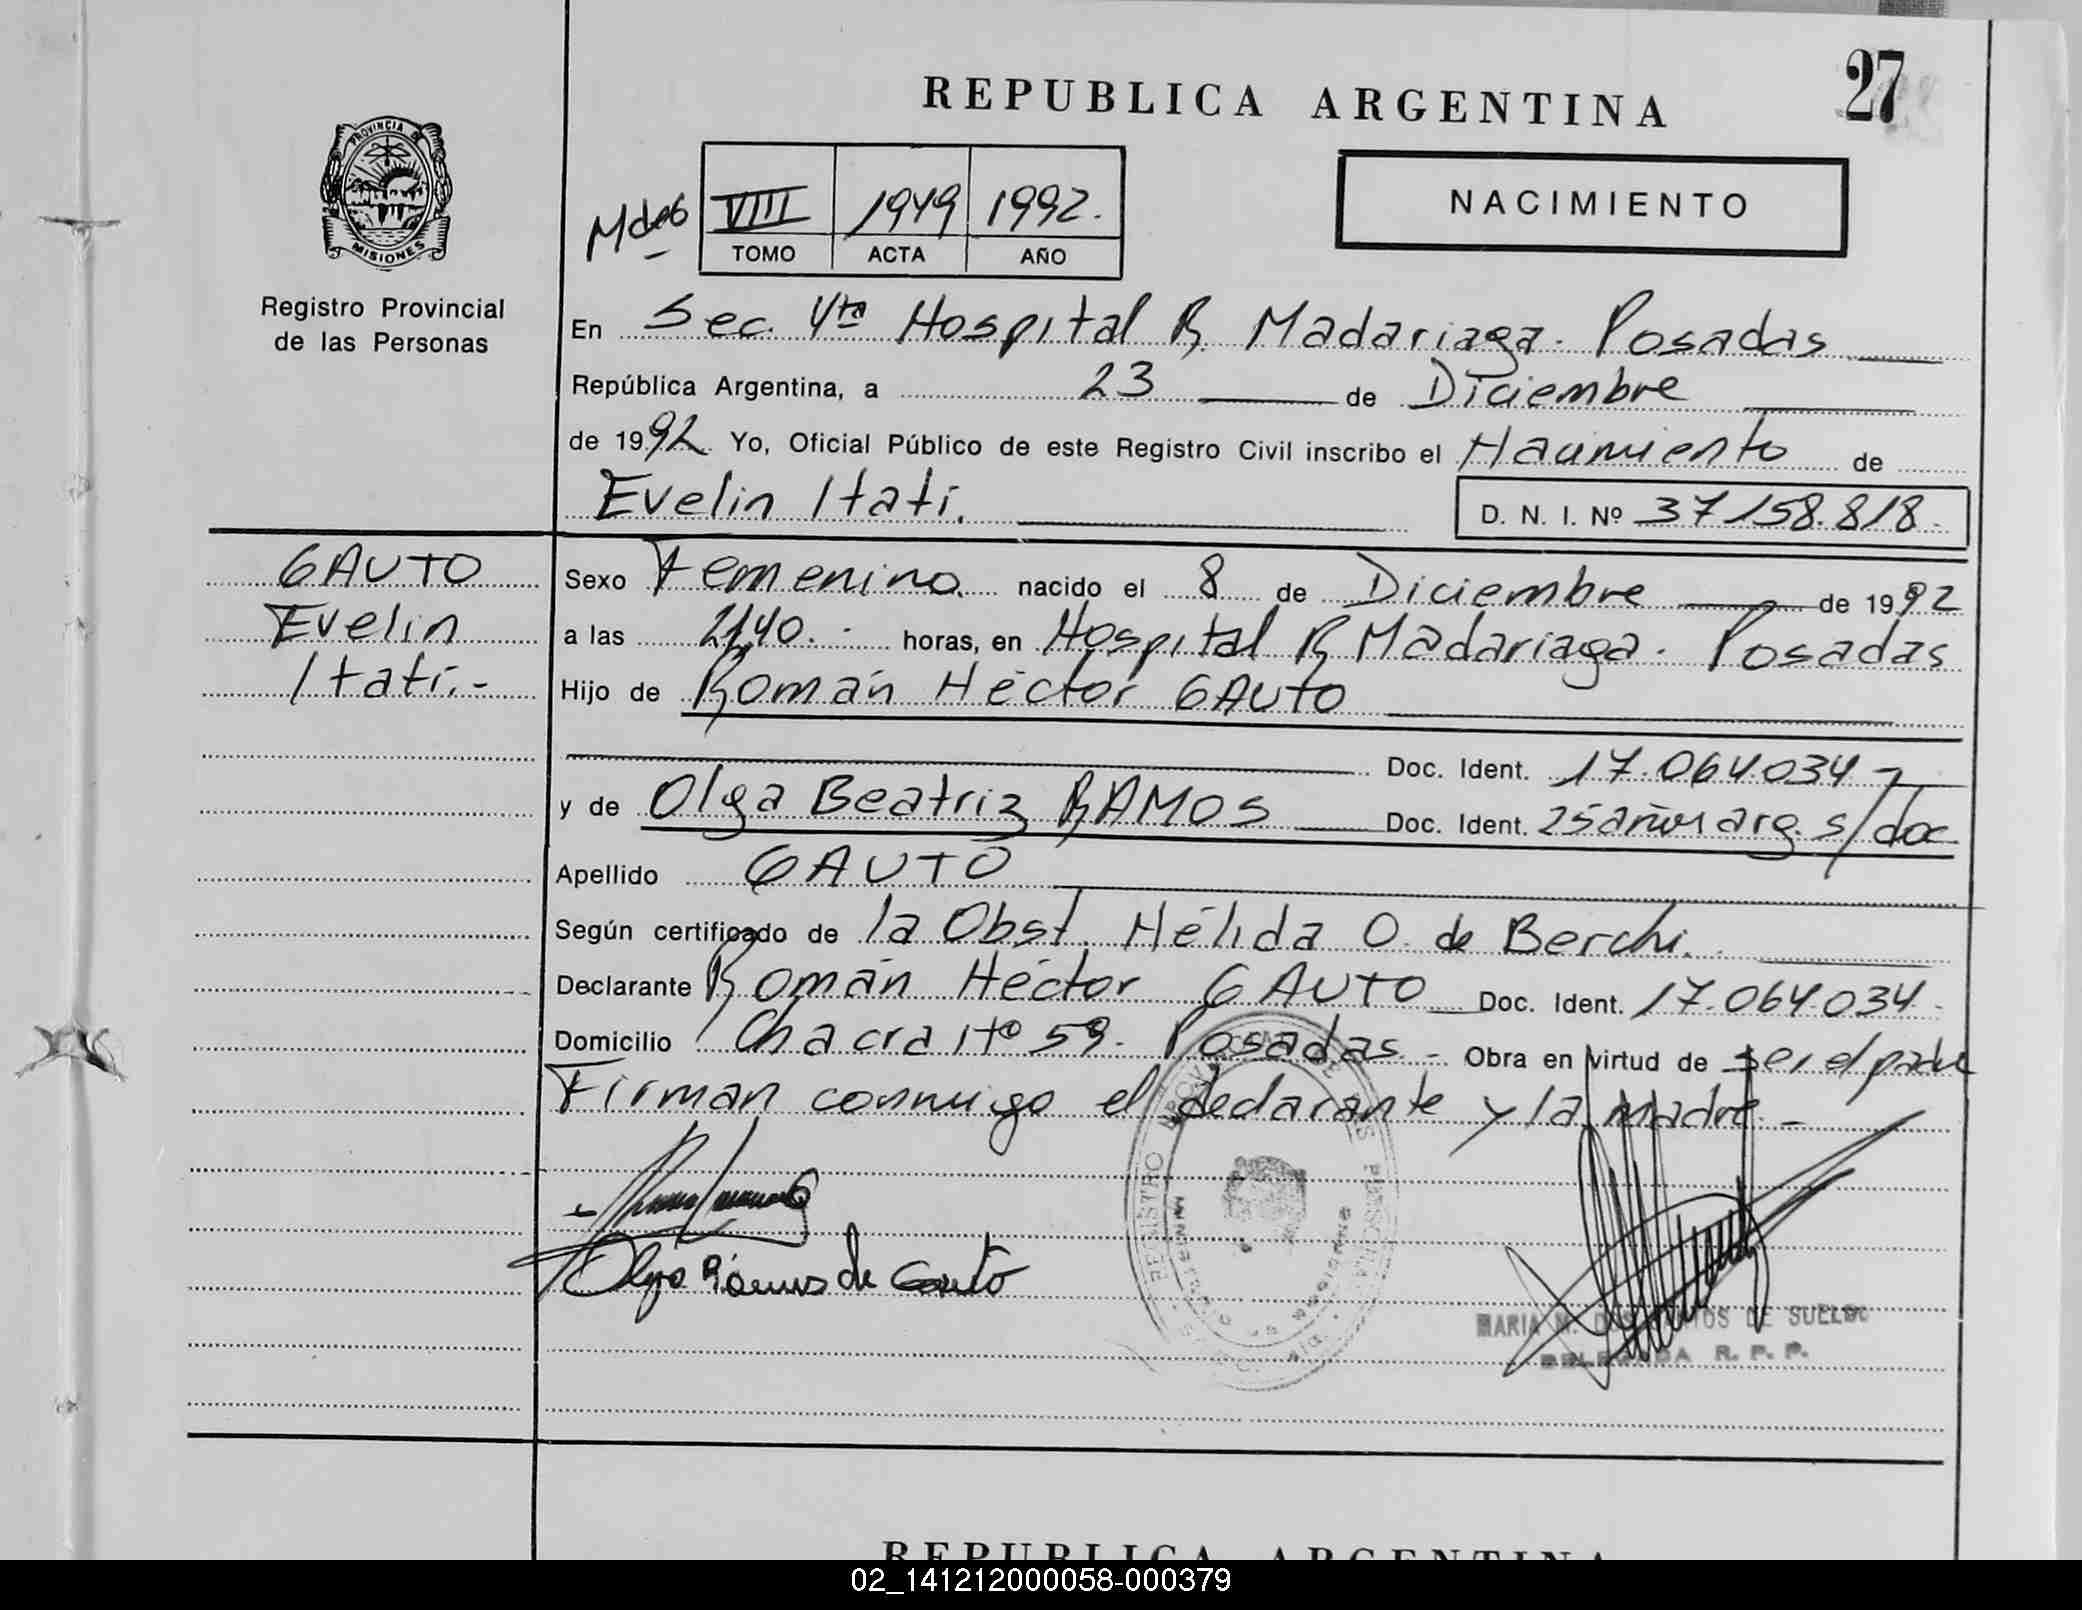 27
REPUBLICA ARGENTINA
NACIMIENTO
PROVINCIA DE
MISIONES
Registro Provincial
de las Personas
VIII 1949 1992.
TOMO ACTA AÑO
En Sec. 4ta Hospital R. Madariaga. Posadas
República Argentina, a 23 de Diciembre
de 1992. Yo, Oficial Público de este Registro Civil inscribo el Nacimiento de
Evelin Itatí.
D. N. I. Nº 37158.818.
GAUTO
Evelin
Itatí.-
Sexo Femenino. nacido el 8 de Diciembre de 1992
a las 21,40. horas, en Hospital R. Madariaga. Posadas
Hijo de Román Héctor GAUTO
Doc. Ident. 17.064.034
y de Olga Beatriz RAMOS Doc. Ident. 25 años arg. s/doc
Apellido GAUTO
Según certificado de la Obst. Hélida O. de Berchi.
Declarante Román Héctor GAUTO Doc. Ident. 17.064.034.
Domicilio Chacra Nº 59. Posadas. Obra en virtud de ser el padre
Firman conmigo el declarante y la madre.-
Olga Ramos de Gauto
MARIA M. DOS SANTOS DE SUELDO
DELEGADA R. P. P.
REPUBLICA ARGENTINA
02_141212000058-000379